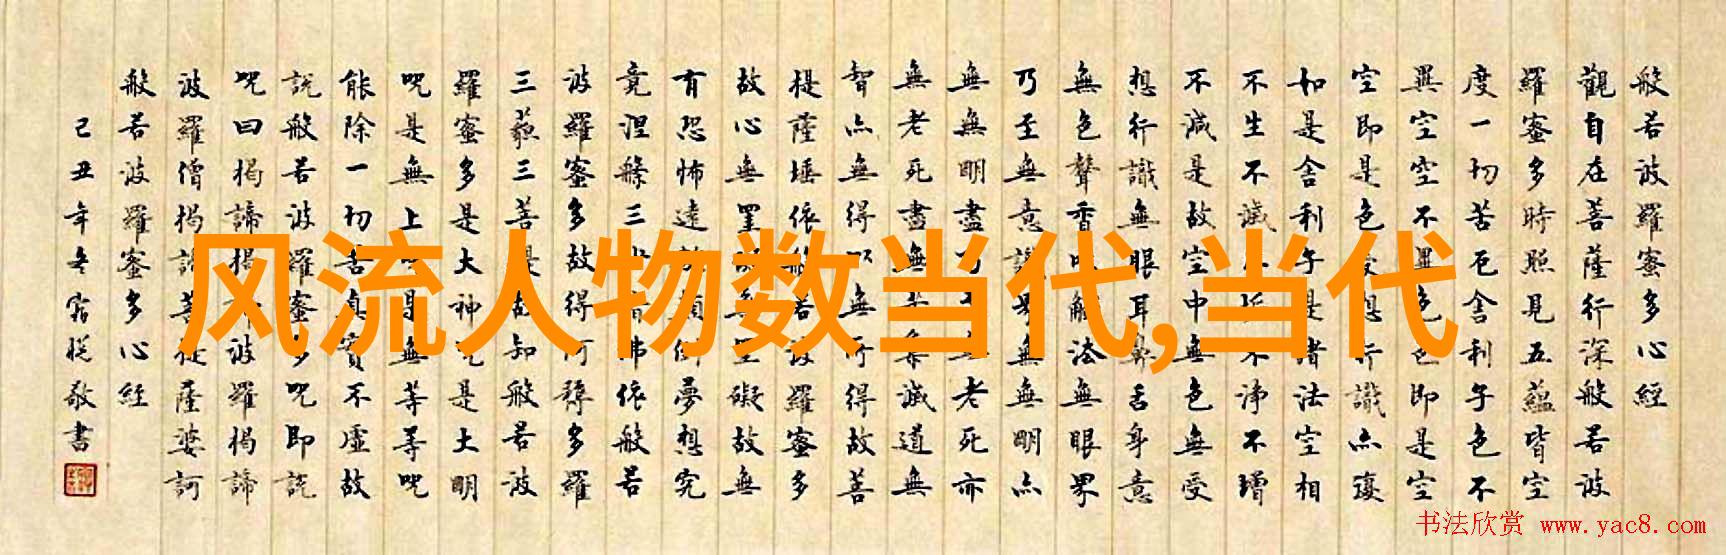 般若波羅蜜多心經
觀自在菩薩行深般若波
羅蜜多時照見五蘊皆空
度一切苦厄舍利子色不
異空空不異色色即是空
空即是色受想行識亦復
如是舍利子是諸法空相
不生不滅不垢不淨不增
不減是故空中無色無受
想行識無眼耳鼻舌身意
無色聲香味觸法無眼界
乃至無意識界無無明亦
無無明盡乃至無老死亦
無老死盡無苦集滅道無
智亦無得以無所得故菩
提薩埵依般若波羅蜜多
故心無罣礙無罣礙故無
有恐怖遠離顛倒夢想究
竟涅槃三世諸佛依般若
波羅蜜多故得阿耨多羅
三藐三菩是故知般若波
羅蜜多是大神咒是大明
咒是無上咒是無等等咒
能除一切苦真實不虛故
說般若波羅蜜多咒即說
咒曰揭諦揭諦波羅揭諦
波羅僧揭諦菩提薩婆訶
般若波羅蜜多心經
己丑年冬敬書
风流人物数当代,当代
书法欣赏 www.yac8.com